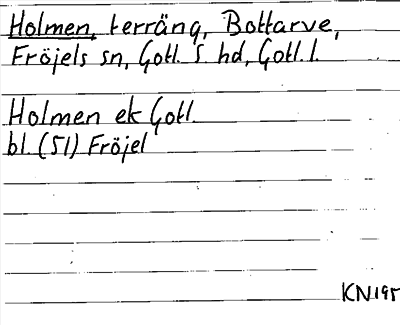 Holmen, terräng, Bottarve,
Fröjels sn, Gotl. S hd, Gotl. l.
Holmen ek Gotl.
bl. (51) Fröjel
KN 195